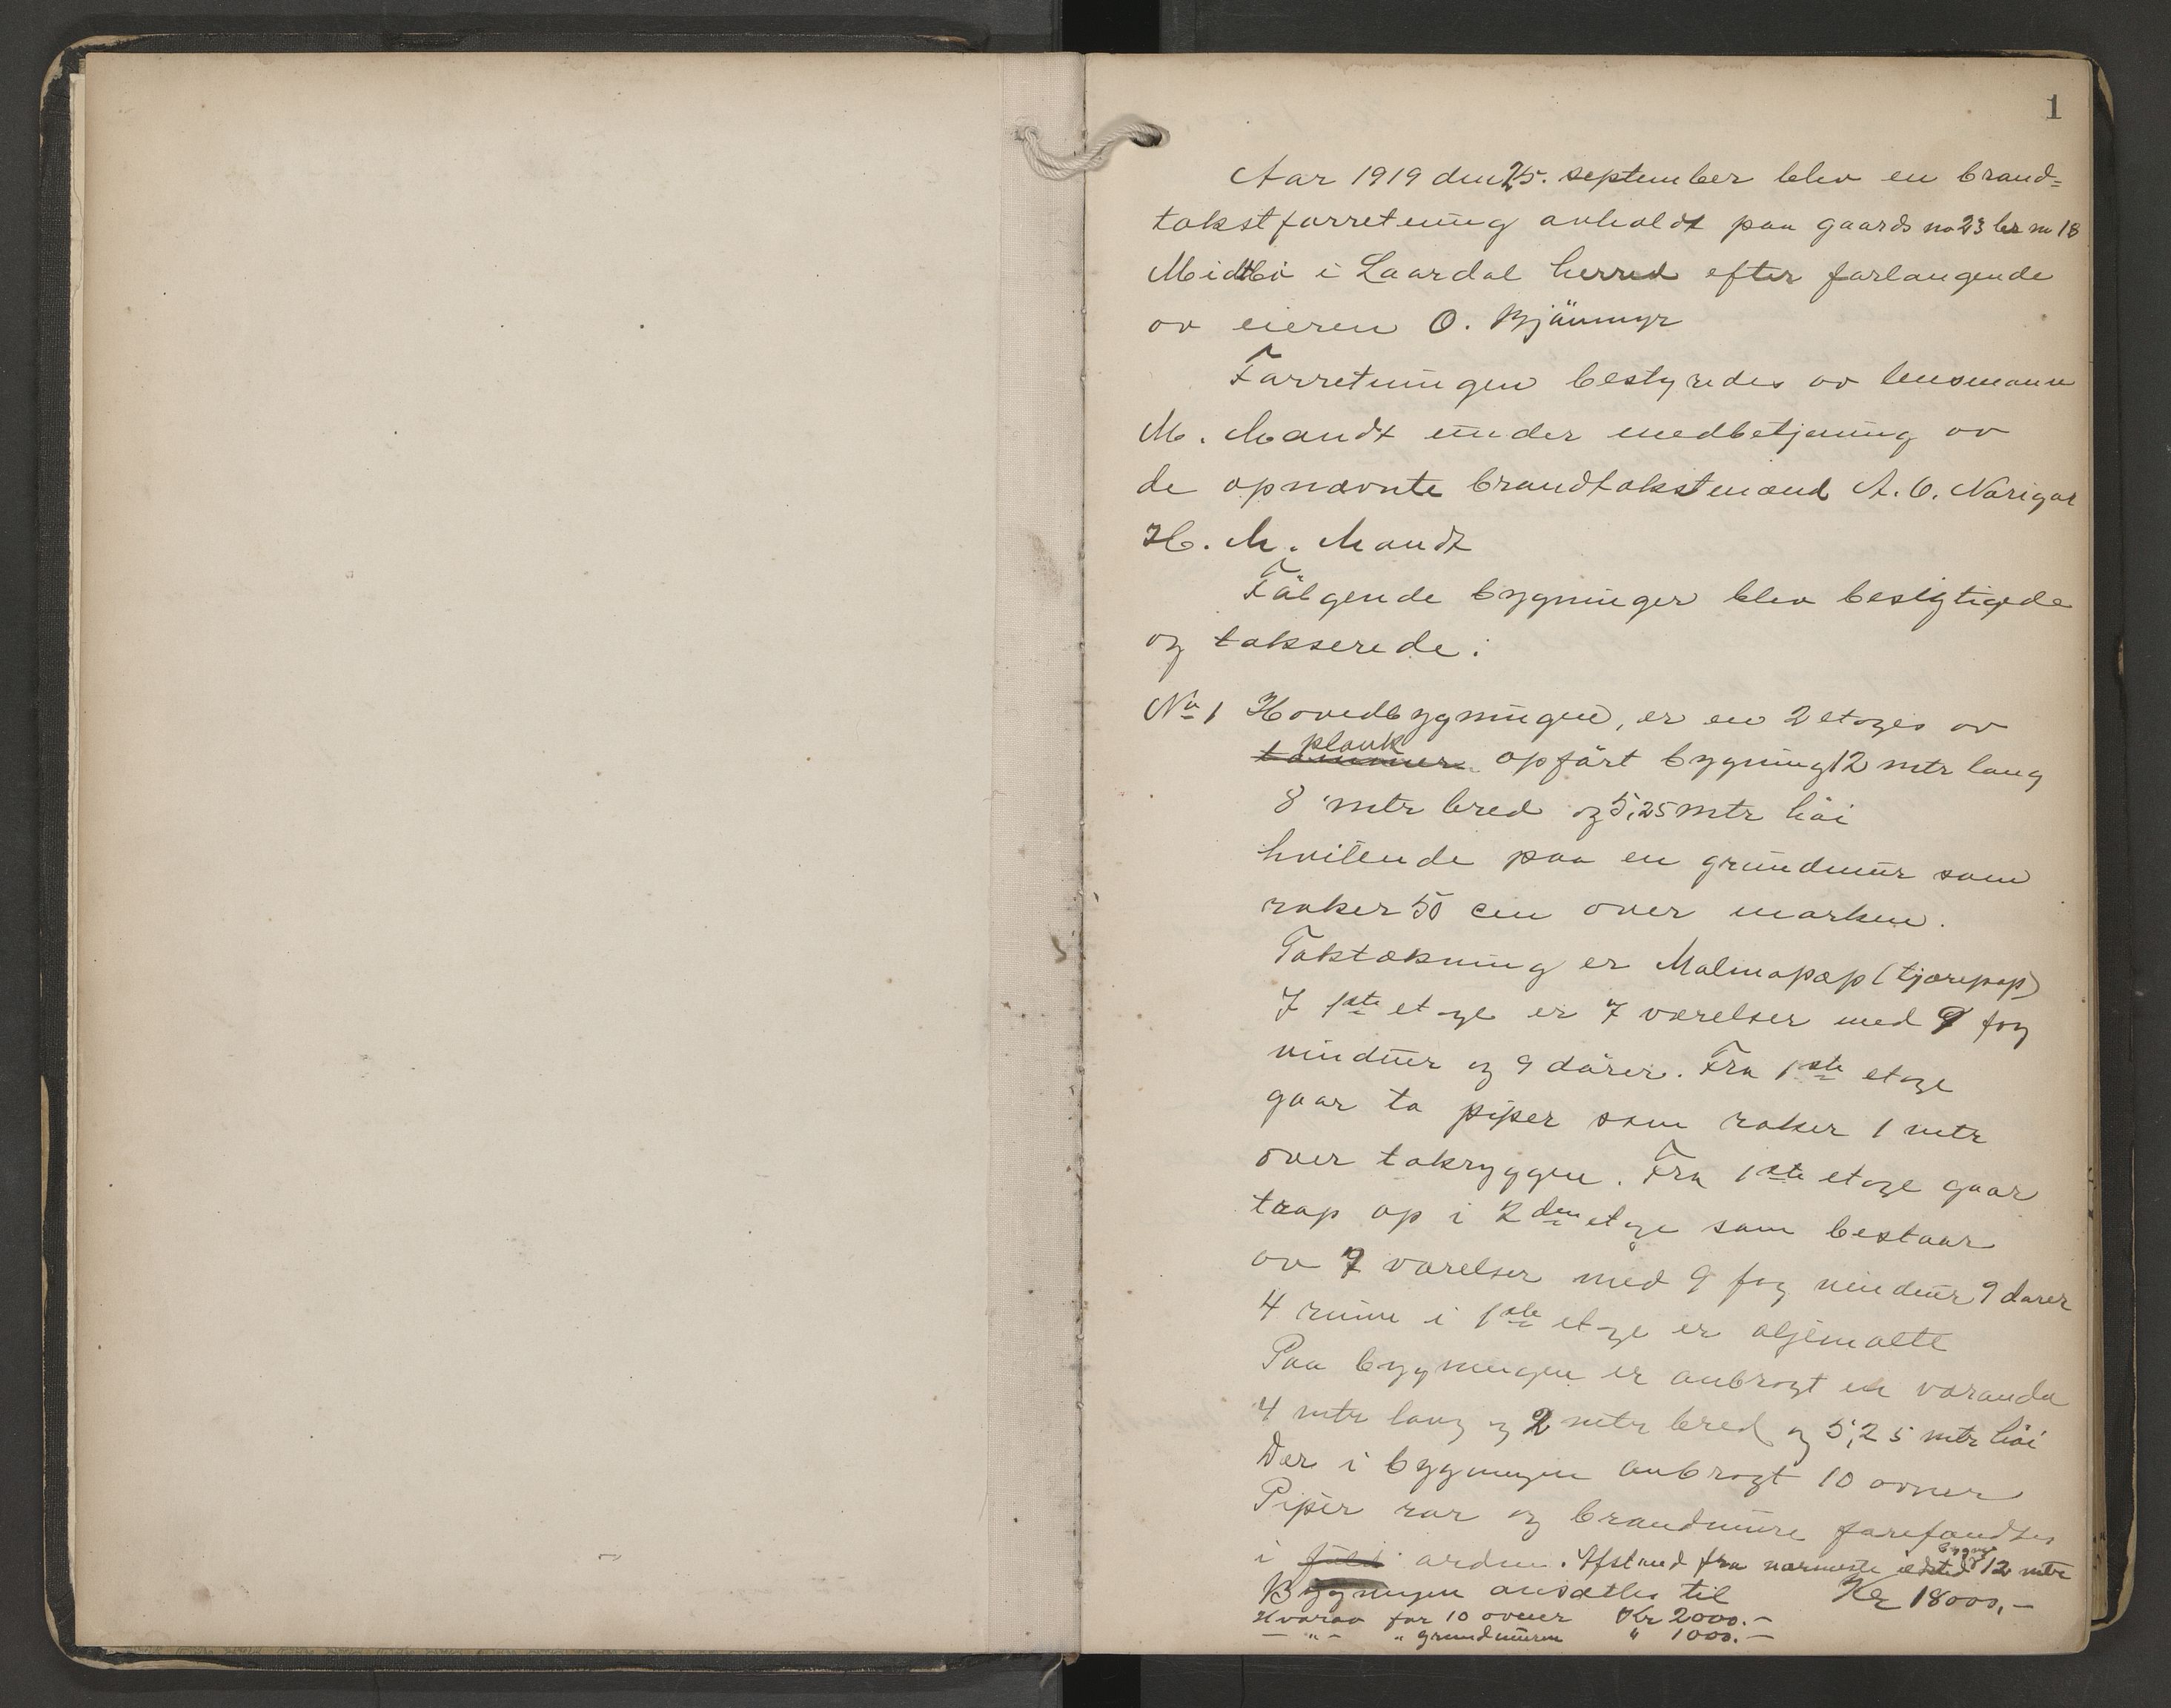 1
Aar 1919 den 25. september blev en brand-
takstforretning avholdt paa gaards no 23 br no 18
Midtbö i Laardal herred efter forlangende
av eieren O. Bjännmyr
Forretningen bestyredes av lensmann
M. Mandt under medbetjening av
de opnævnte brandtakstmænd A. O. Norigar
H. M. Mandt
Fölgende bygninger blev besigtigede
og takserede:
No 1 Hovedbygningen, er en 2 etages av
plank
tömmer opfört bygning 12 mtr lang
8 mtr bred og 5,25 mtr höi
hvilende paa en grundmur som
raker 50 cm over marken.
Taktækning er Malmøpap (tjærepap)
I 1ste etage er 7 værelser med 9 fag
vinduer og 9 dörer. Fra 1ste etage
gaar to piper som raker 1 mtr
over takryggen. Fra 1ste etage gaar
trap op i 2den etage som bestaar
av 7 værelser med 9 fag vinduer 9 dörer
4 rum i 1ste etage er oljemalte
Paa bygningen er anbragt en veranda
4 mtr lang og 2 mtr bred og 5,25 mtr höi
Der i bygningen anbragt 10 ovner
Piper rör og brandmure forefandtes
i fuld orden. Afstand fra nærmeste ildsted 12 mtr
Bygningen ansættes til Kr 18000,-
Hvorav for 10 ovner Kr 2000.-
— " — " grundmuren " 1000.-